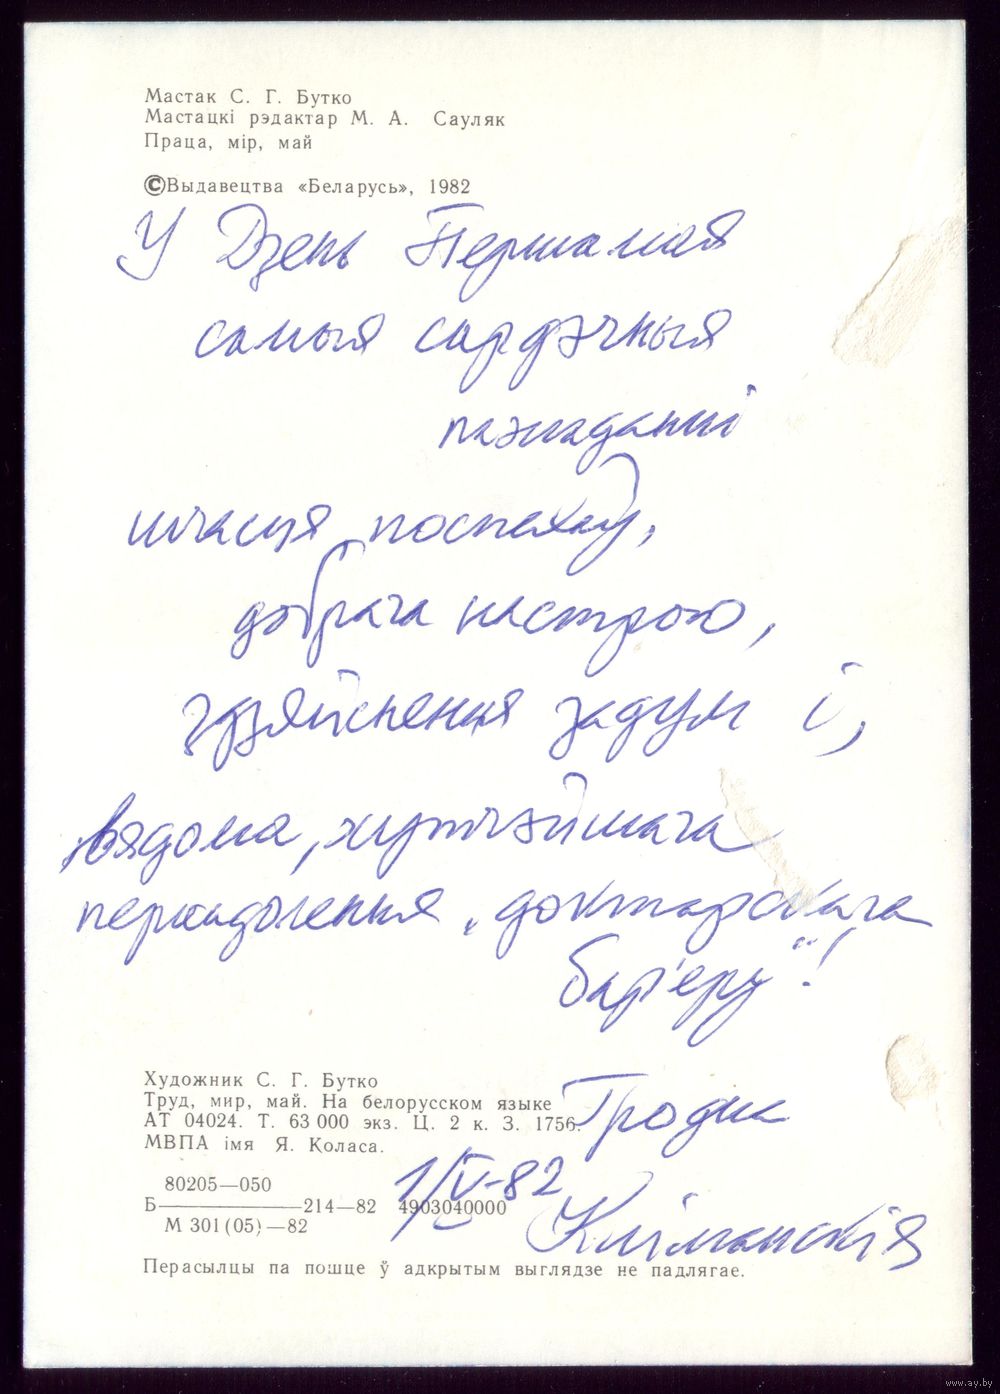 Мастак С. Г. Бутко
Мастацкі рэдактар М. А. Сауляк
Праца, мір, май
©Выдавецтва «Беларусь», 1982
У Дзень Першамая
самыя сардэчныя
пажаданні
шчасця, поспехаў,
добрага настрою,
здзяйснення задум і,
вядома, хутчэйшага
пераадолення „доктарскага
бар'еру"!
Художник С. Г. Бутко
Труд, мир, май. На белорусском языке
АТ 04024. Т. 63 000 экз. Ц. 2 к. З. 1756.
МВПА імя Я. Коласа.
Гродна
80205—050
Б—214—82 4903040000
М 301(05)—82
1/V-82
Кліманскія
Перасылцы па пошце ў адкрытым выглядзе не падлягае.
www.ay.by